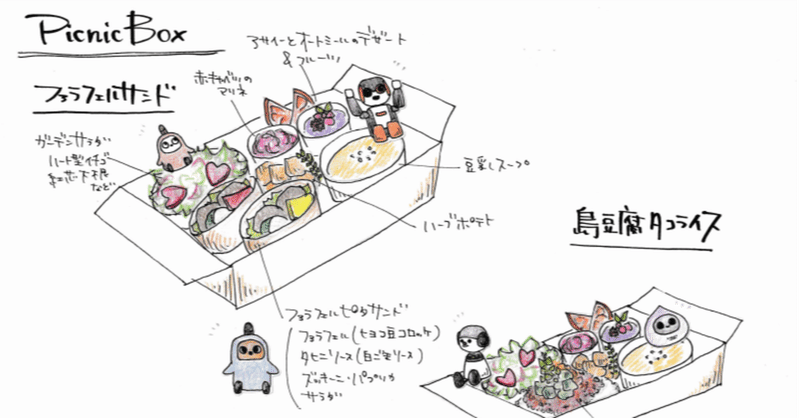 Picnic Box
アサイーとオートミールのデザート
&フルーツ
赤キャベツの
マリネ
ファラフェルサンド
ガーデンサラダ
ハート型イチゴ
紅芯大根
など
豆乳スープ
ハーブポテト
島豆腐タコライス
ファラフェルピタサンド
ファラフェル(ヒヨコ豆コロッケ)
タヒニソース(白ごまソース)
ズッキーニ・パプリカ
サラダ